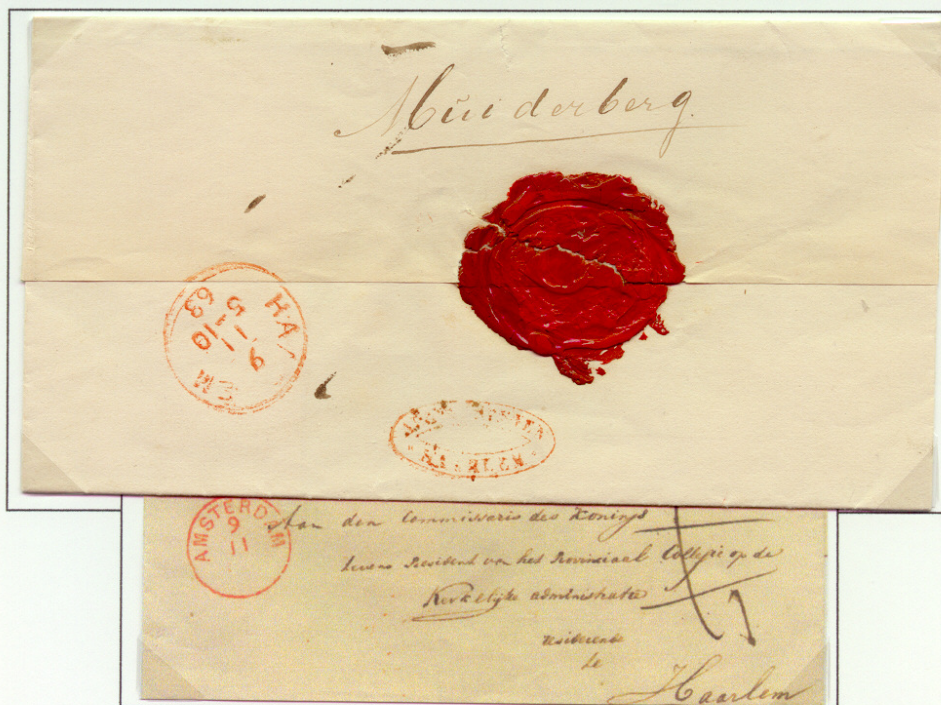 Muiderberg.
HA EM
5
11 10
9
63
HAARLEM
AMSTERDAM
9
11
Aan den Commissaris des Konings
tevens President van het Provinciaal Collegie op de
Kerkelijke administratie
residerende
te
Haarlem